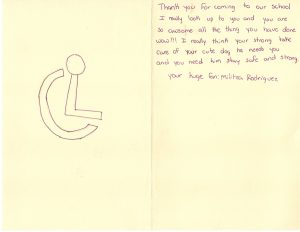 Thank you for coming to our school
I really look up to you and you are
so awsome all the thing you have done
wow!!! I really think your strong take
care of your cute dog he needs you
and you need him stay safe and strong
your huge fan: Melitza Rodriguez